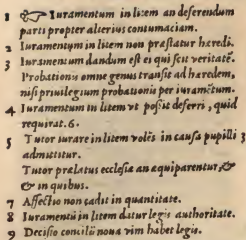 1 ☞ Iuramentum in litem an deferendum
parti propter alterius contumaciam.
2 Iuramentum in litem non præstatur hæredi.
3 Iuramentum dandum est ei qui scit veritatē.
Probationis omne genus transit ad hæredem,
nisi priuilegium probationis per iuramētum.
4 Iuramentum in litem vt possit deferri, quid
requirat. 6.
5 Tutor iurare in litem volēs in causa pupilli
admittitur.
Tutor prælatus ecclesia an æquiparentur, &
& in quibus.
7 Affectio non cadit in quantitate.
8 Iuramentū in litem datur legis authoritate.
9 Decisio concilii noua vim habet legis.
3